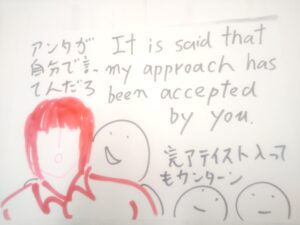 アンタが
自分で言っ
てんだろ
It is said that
my approach has
been accepted
by you.
完アテイスト入って
もカンターン